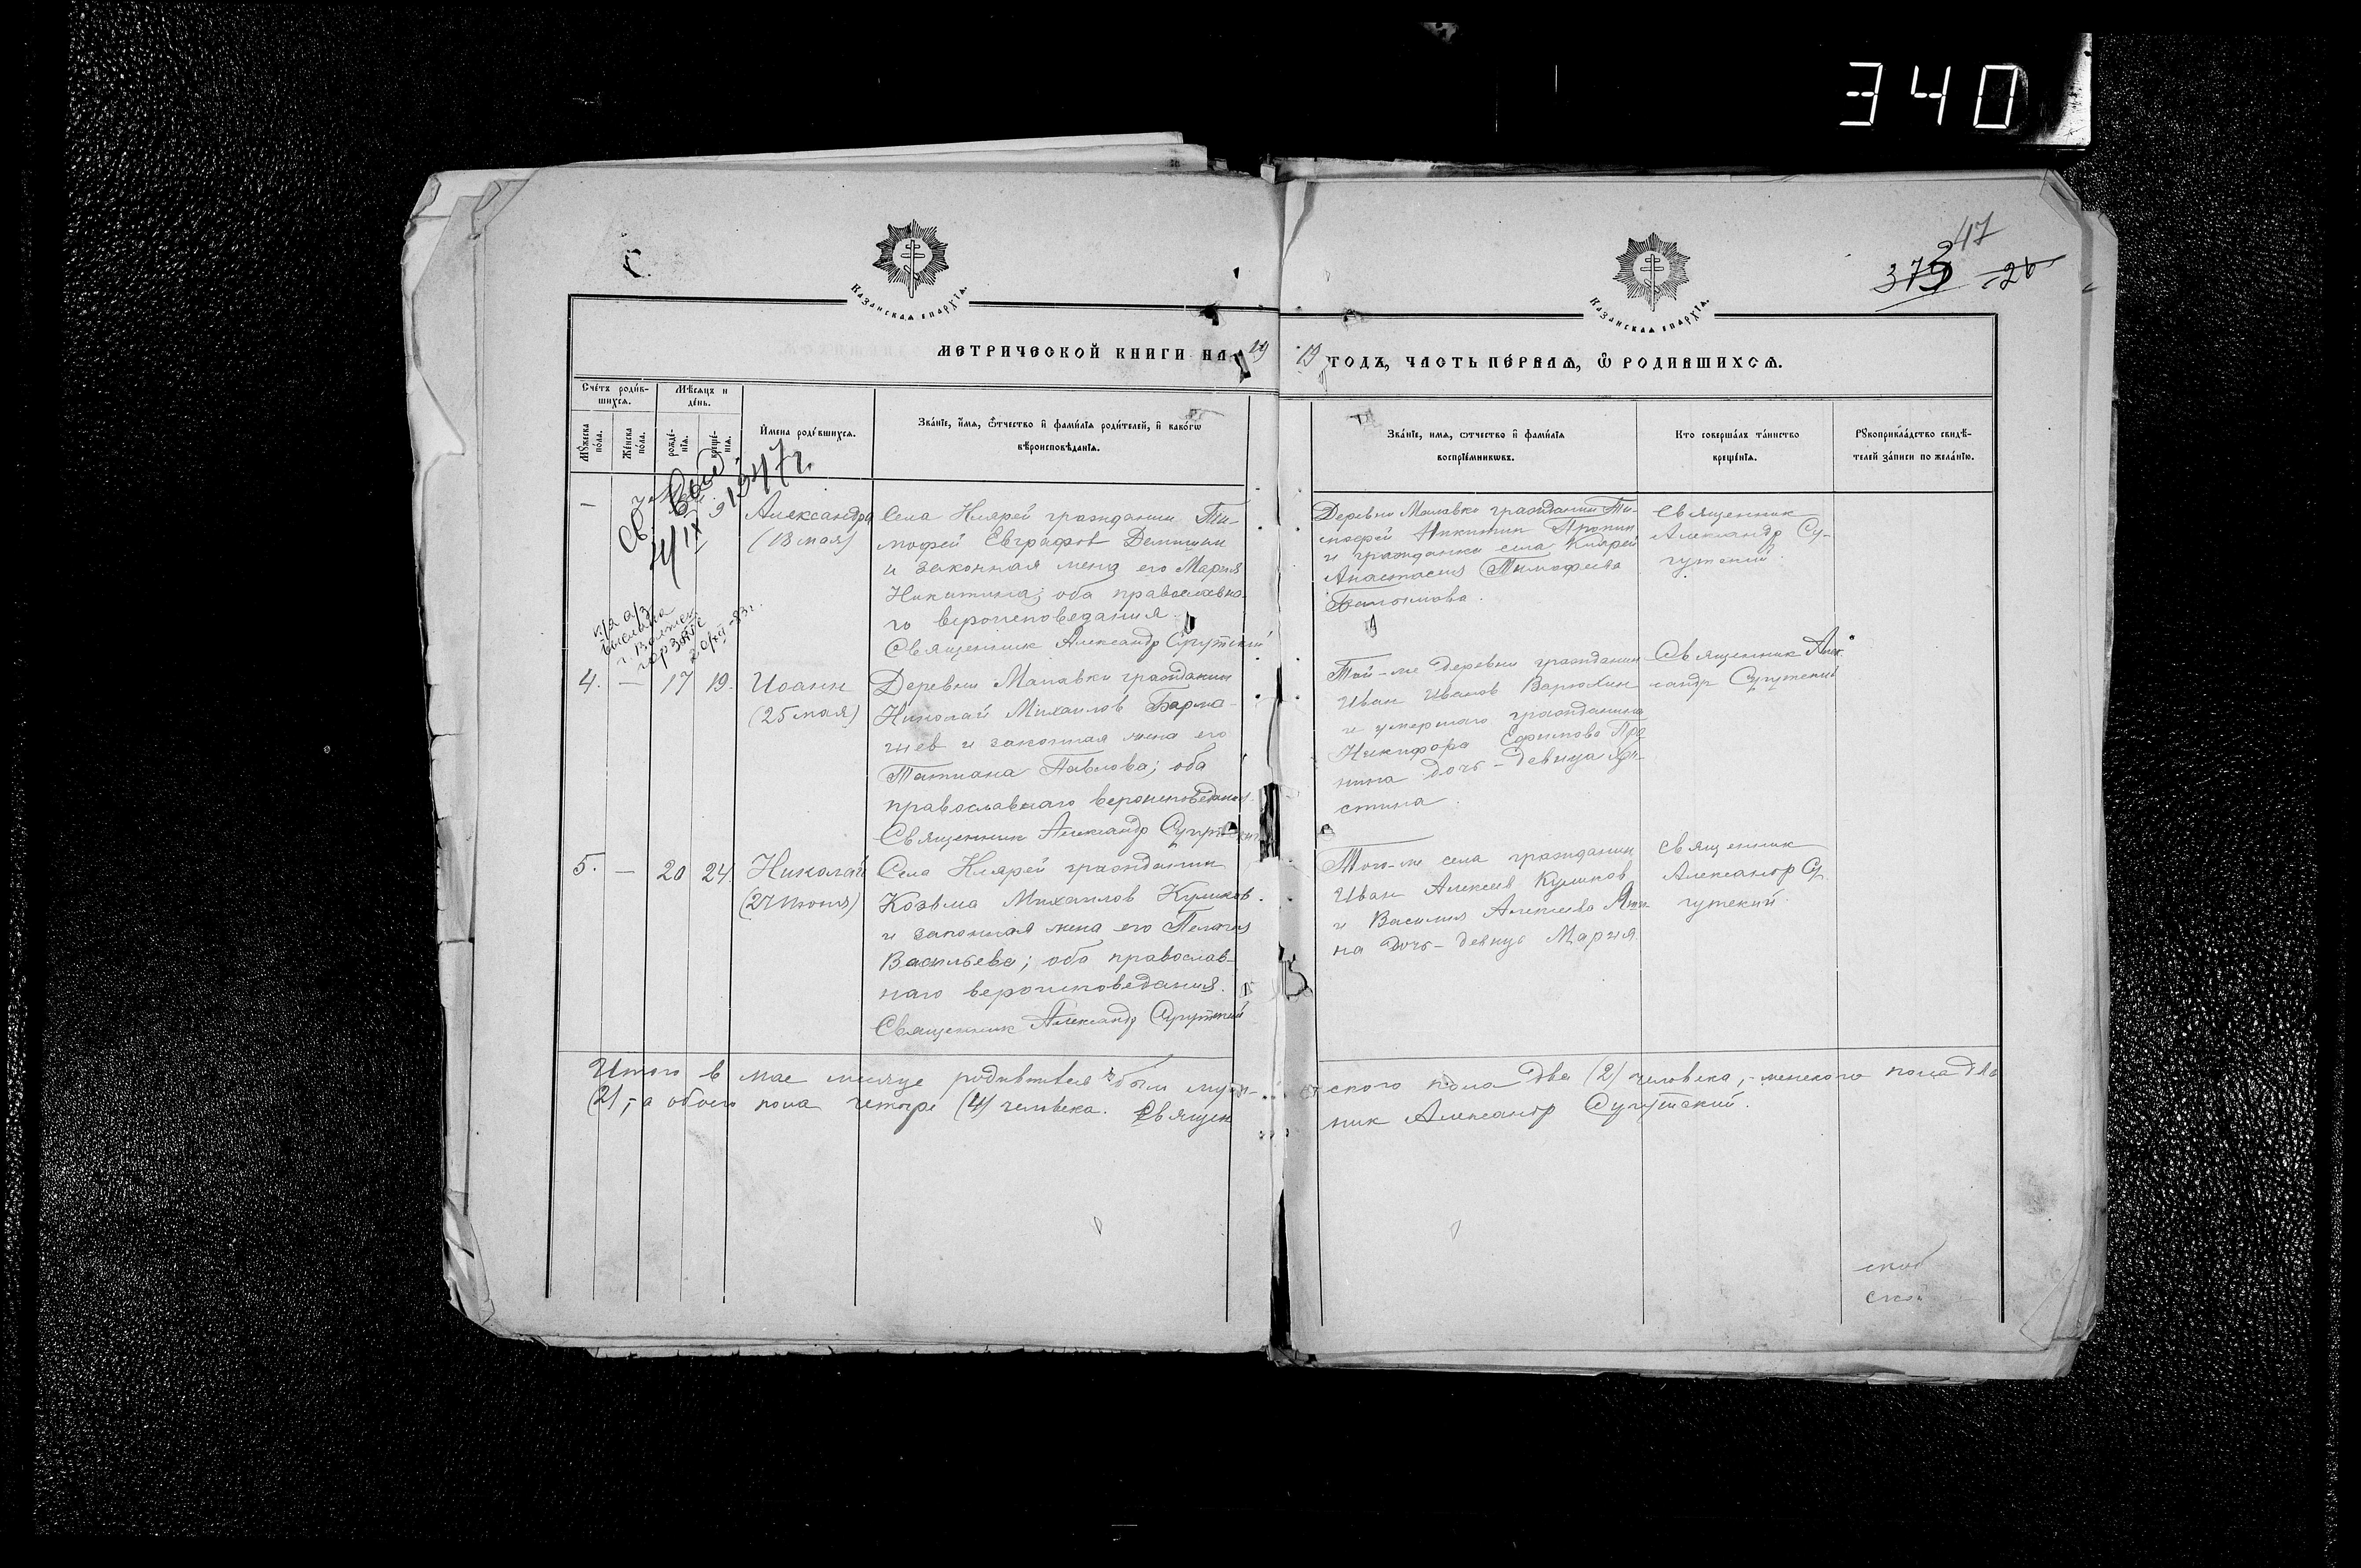 340
47
373 20
Казанская епархїа.
Казанская епархїа.
Метрической книги на 19
19 годъ, часть первая, ѡ родившихся.
Счетъ родив-
шихся.
Мѣсяцъ и
день.
Мужеска
пола.
Женска
пола.
рожде-
нія.
креще-
нія.
Имена родившихся.
Званіе, имя, ѿчество и фамилія родителей, и какогѡ
вѣроисповѣданія.
Званіе, имя, ѿчество и фамилія
воспріемниковъ.
Кто совершалъ таинство
крещенія.
Рукоприкладство свидѣ-
телей записи по желанію.
1947 г.
4/IX
20/XII-83 г.
— 7 9 Александра
(18 мая)
Села Клярей гражданин Ти-
мофей Евграфов Демишин
и законная жена его Мария
Никитина; оба православна-
го вероисповедания.
Священник Александр Сугутский
Деревни Малавки гражданин Ти-
мофей Никитин Пронин
и гражданка села Клярей
Анастасия Тимофеева
Священник
Александр Су-
гутский.
4. — 17 19. Иоанн
(25 мая)
Деревни Малавки гражданин
Николай Михаилов Барма-
и законная жена его
Татиана Павлова; оба
православнаго вероисповедания.
Священник Александр Сугутский
Той-же деревни гражданин
Иван Иванов Варюхин
и умершаго гражданина
Никифора Ефимова Про-
нина дочь-девица Иу-
стина.
Священник Алек-
сандр Сугутский
5. — 20 24. Николай
(27 июля)
Села Клярей гражданин
Козьма Михаилов Куликов
и законная жена его Пелагия
Васильева; оба православ-
наго вероисповедания.
Священник Александр Сугутский
Того-же села гражданин
Иван Алексеев Куликов
и Василия Алексеева
на дочь-девица Мария.
Священник
Александр Су-
гутский.
Итого в мае месяце родившихся было муже-
ского пола два (2) человека, - женского пола два
(2), - а обоего пола четыре (4) человека. Священ
ник Александр Сугутский.